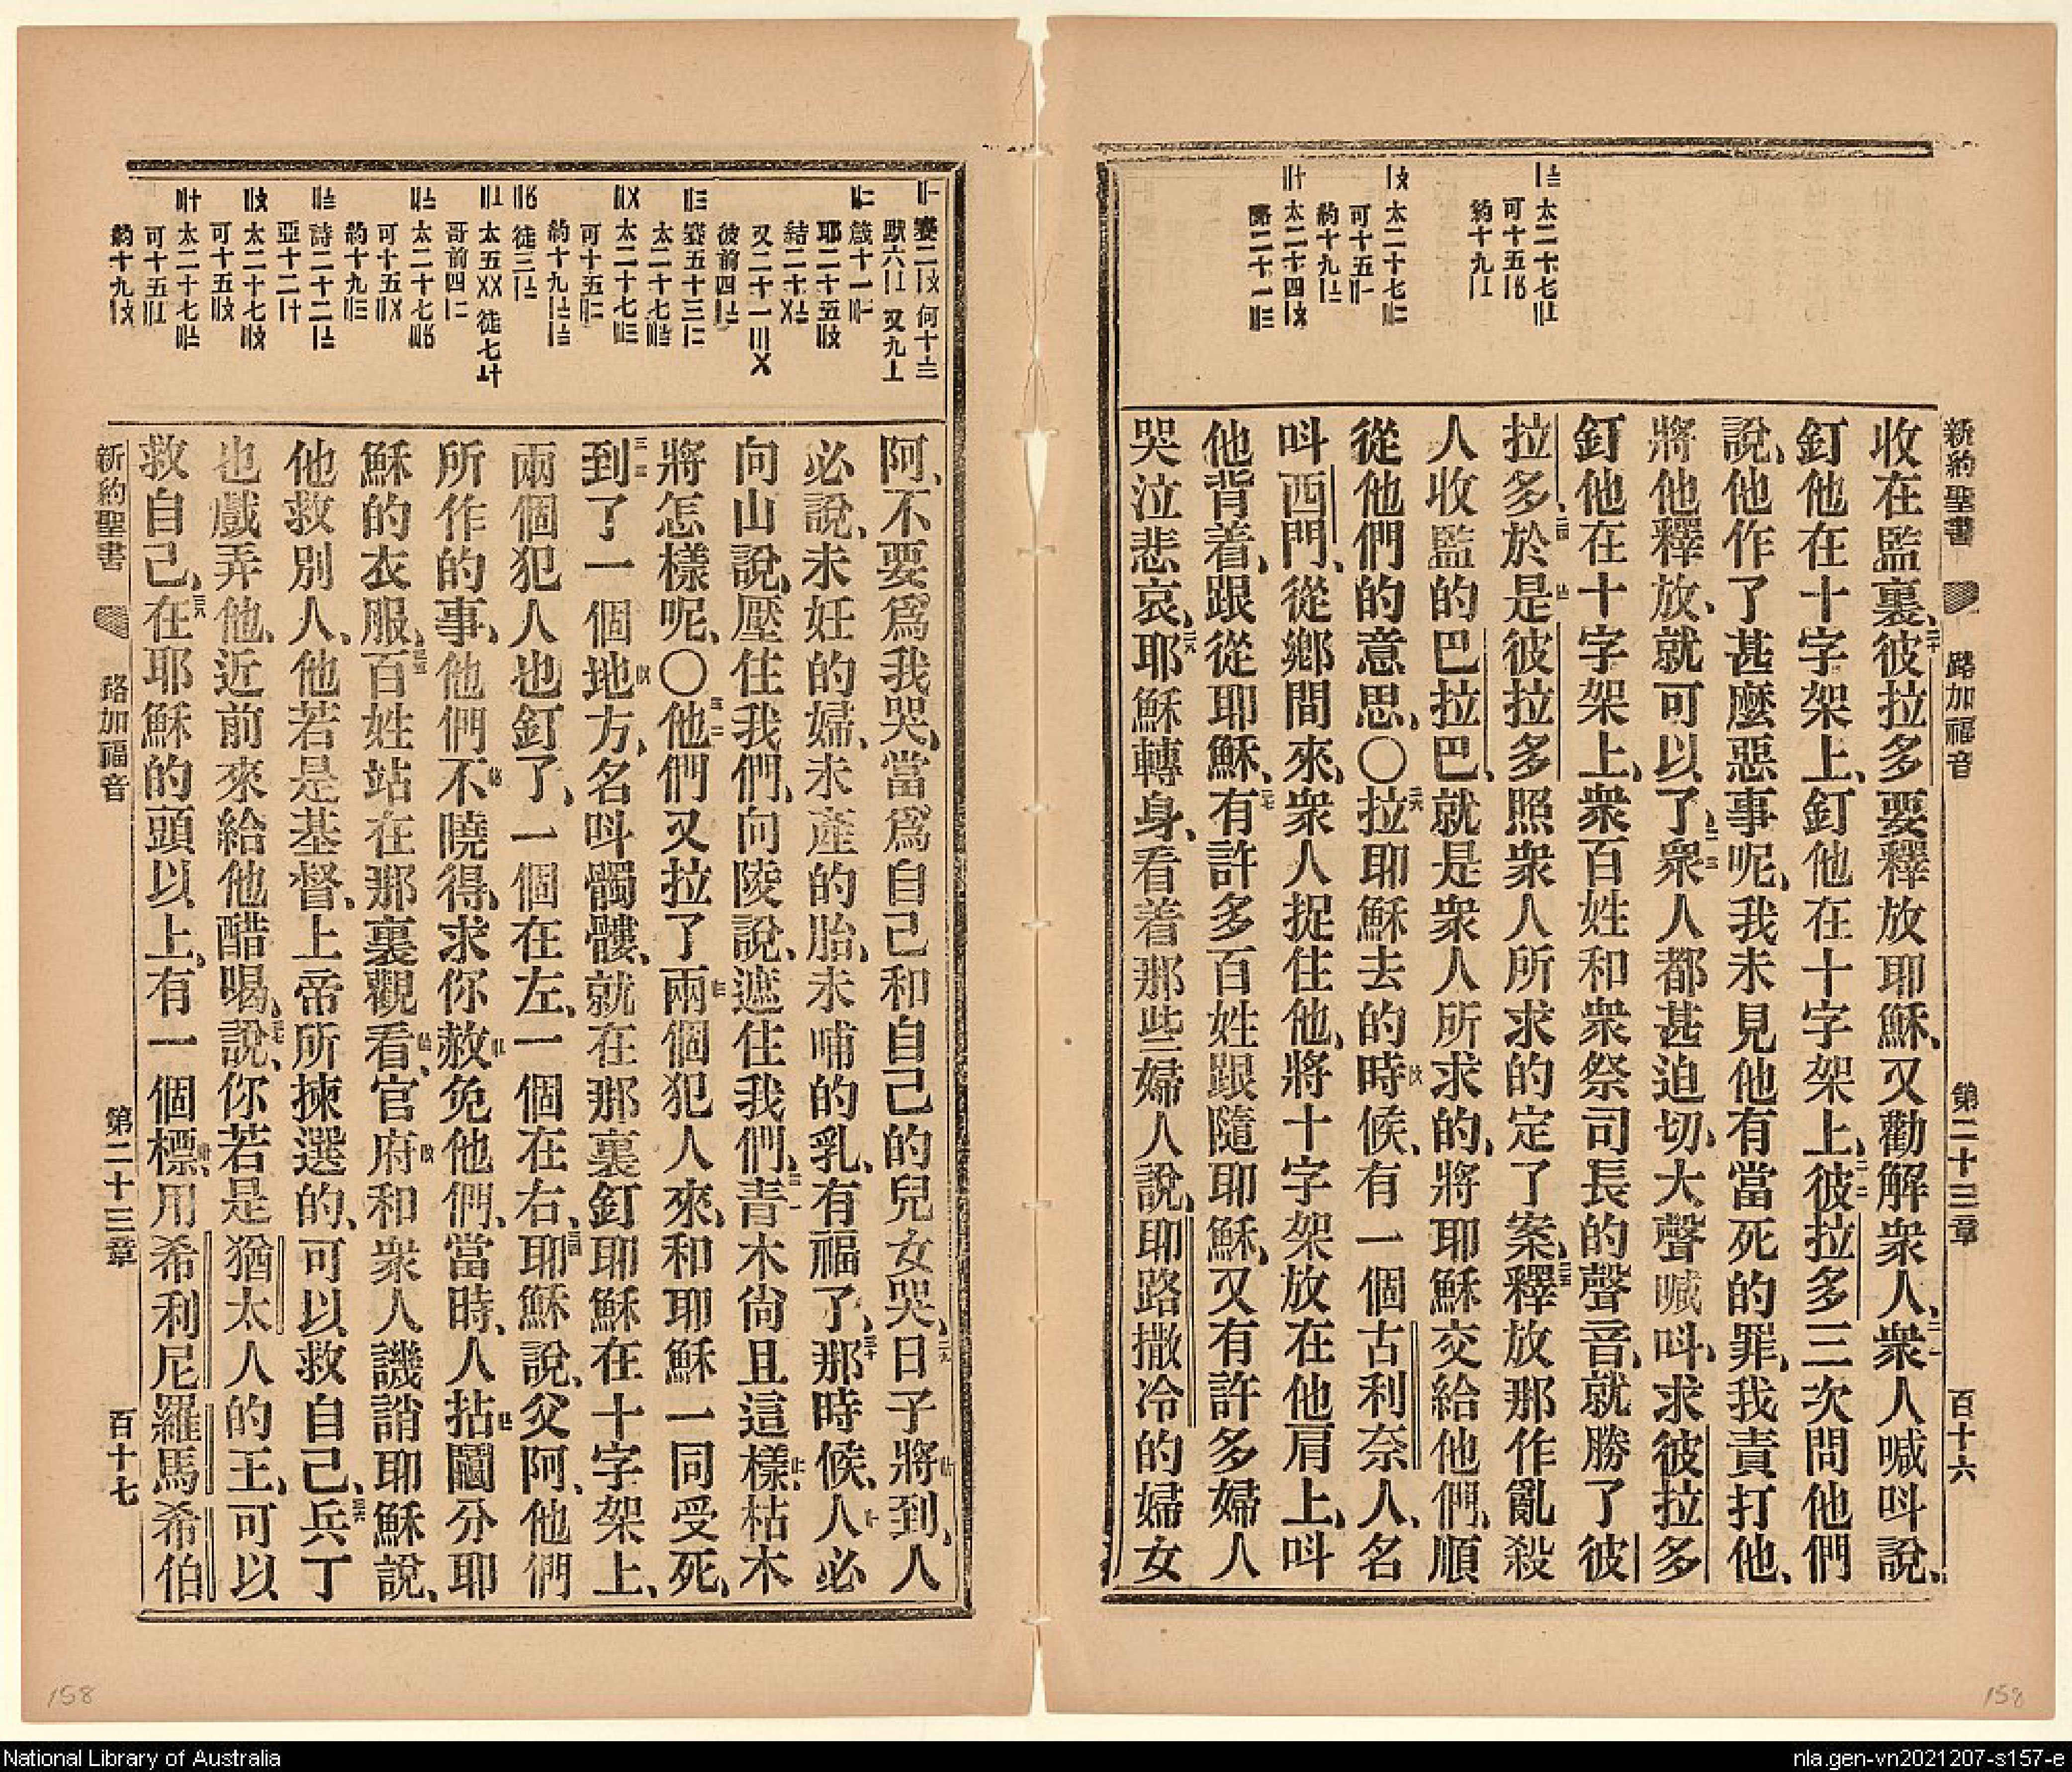 新約聖書 路加福音 第二十三章 百十六
收在監裏、彼拉多要釋放耶穌、又勸解衆人、衆人喊呌說、
釘他在十字架上、釘他在十字架上、彼拉多三次問他們
說、他作了甚麼惡事呢、我未見他有當死的罪、我責打他、
將他釋放、就可以了、衆人都甚迫切、大聲喊呌、求彼拉多
釘他在十字架上、衆百姓和衆祭司長的聲音、就勝了彼
拉多、於是彼拉多照衆人所求的定了案、釋放那作亂殺
人收監的巴拉巴、就是衆人所求的、將耶穌交給他們、順
從他們的意思、〇拉耶穌去的時候、有一個古利奈人、名
呌西門、從鄉間來、衆人捉住他、將十字架放在他肩上、呌
他背着、跟從耶穌、有許多百姓跟隨耶穌、又有許多婦人
哭泣悲哀、耶穌轉身、看着那些婦人說、耶路撒冷的婦女
阿、不要爲我哭、當爲自己和自己的兒女哭、日子將到、人
必說、未妊的婦、未產的胎、未哺的乳、有福了、那時候、人必
向山說、壓住我們、向陵說、遮住我們、青木尙且這樣、枯木
將怎樣呢、〇他們又拉了兩個犯人來、和耶穌一同受死、
到了一個地方、名呌髑髏、就在那裏釘耶穌在十字架上、
兩個犯人也釘了、一個在左、一個在右、耶穌說、父阿、他們
所作的事、他們不曉得、求你赦免他們、當時、人拈鬮分耶
穌的衣服、百姓站在那裏觀看、官府和衆人譏誚耶穌說、
他救別人、他若是基督、上帝所揀選的、可以救自己、兵丁
也戲弄他、近前來給他醋喝、說、你若是猶太人的王、可以
救自己、在耶穌的頭以上、有一個標、用希利尼羅馬希伯
新約聖書 路加福音 第二十三章 百十七
158
158
National Library of Australia
nla.gen-vn2021207-s157-e